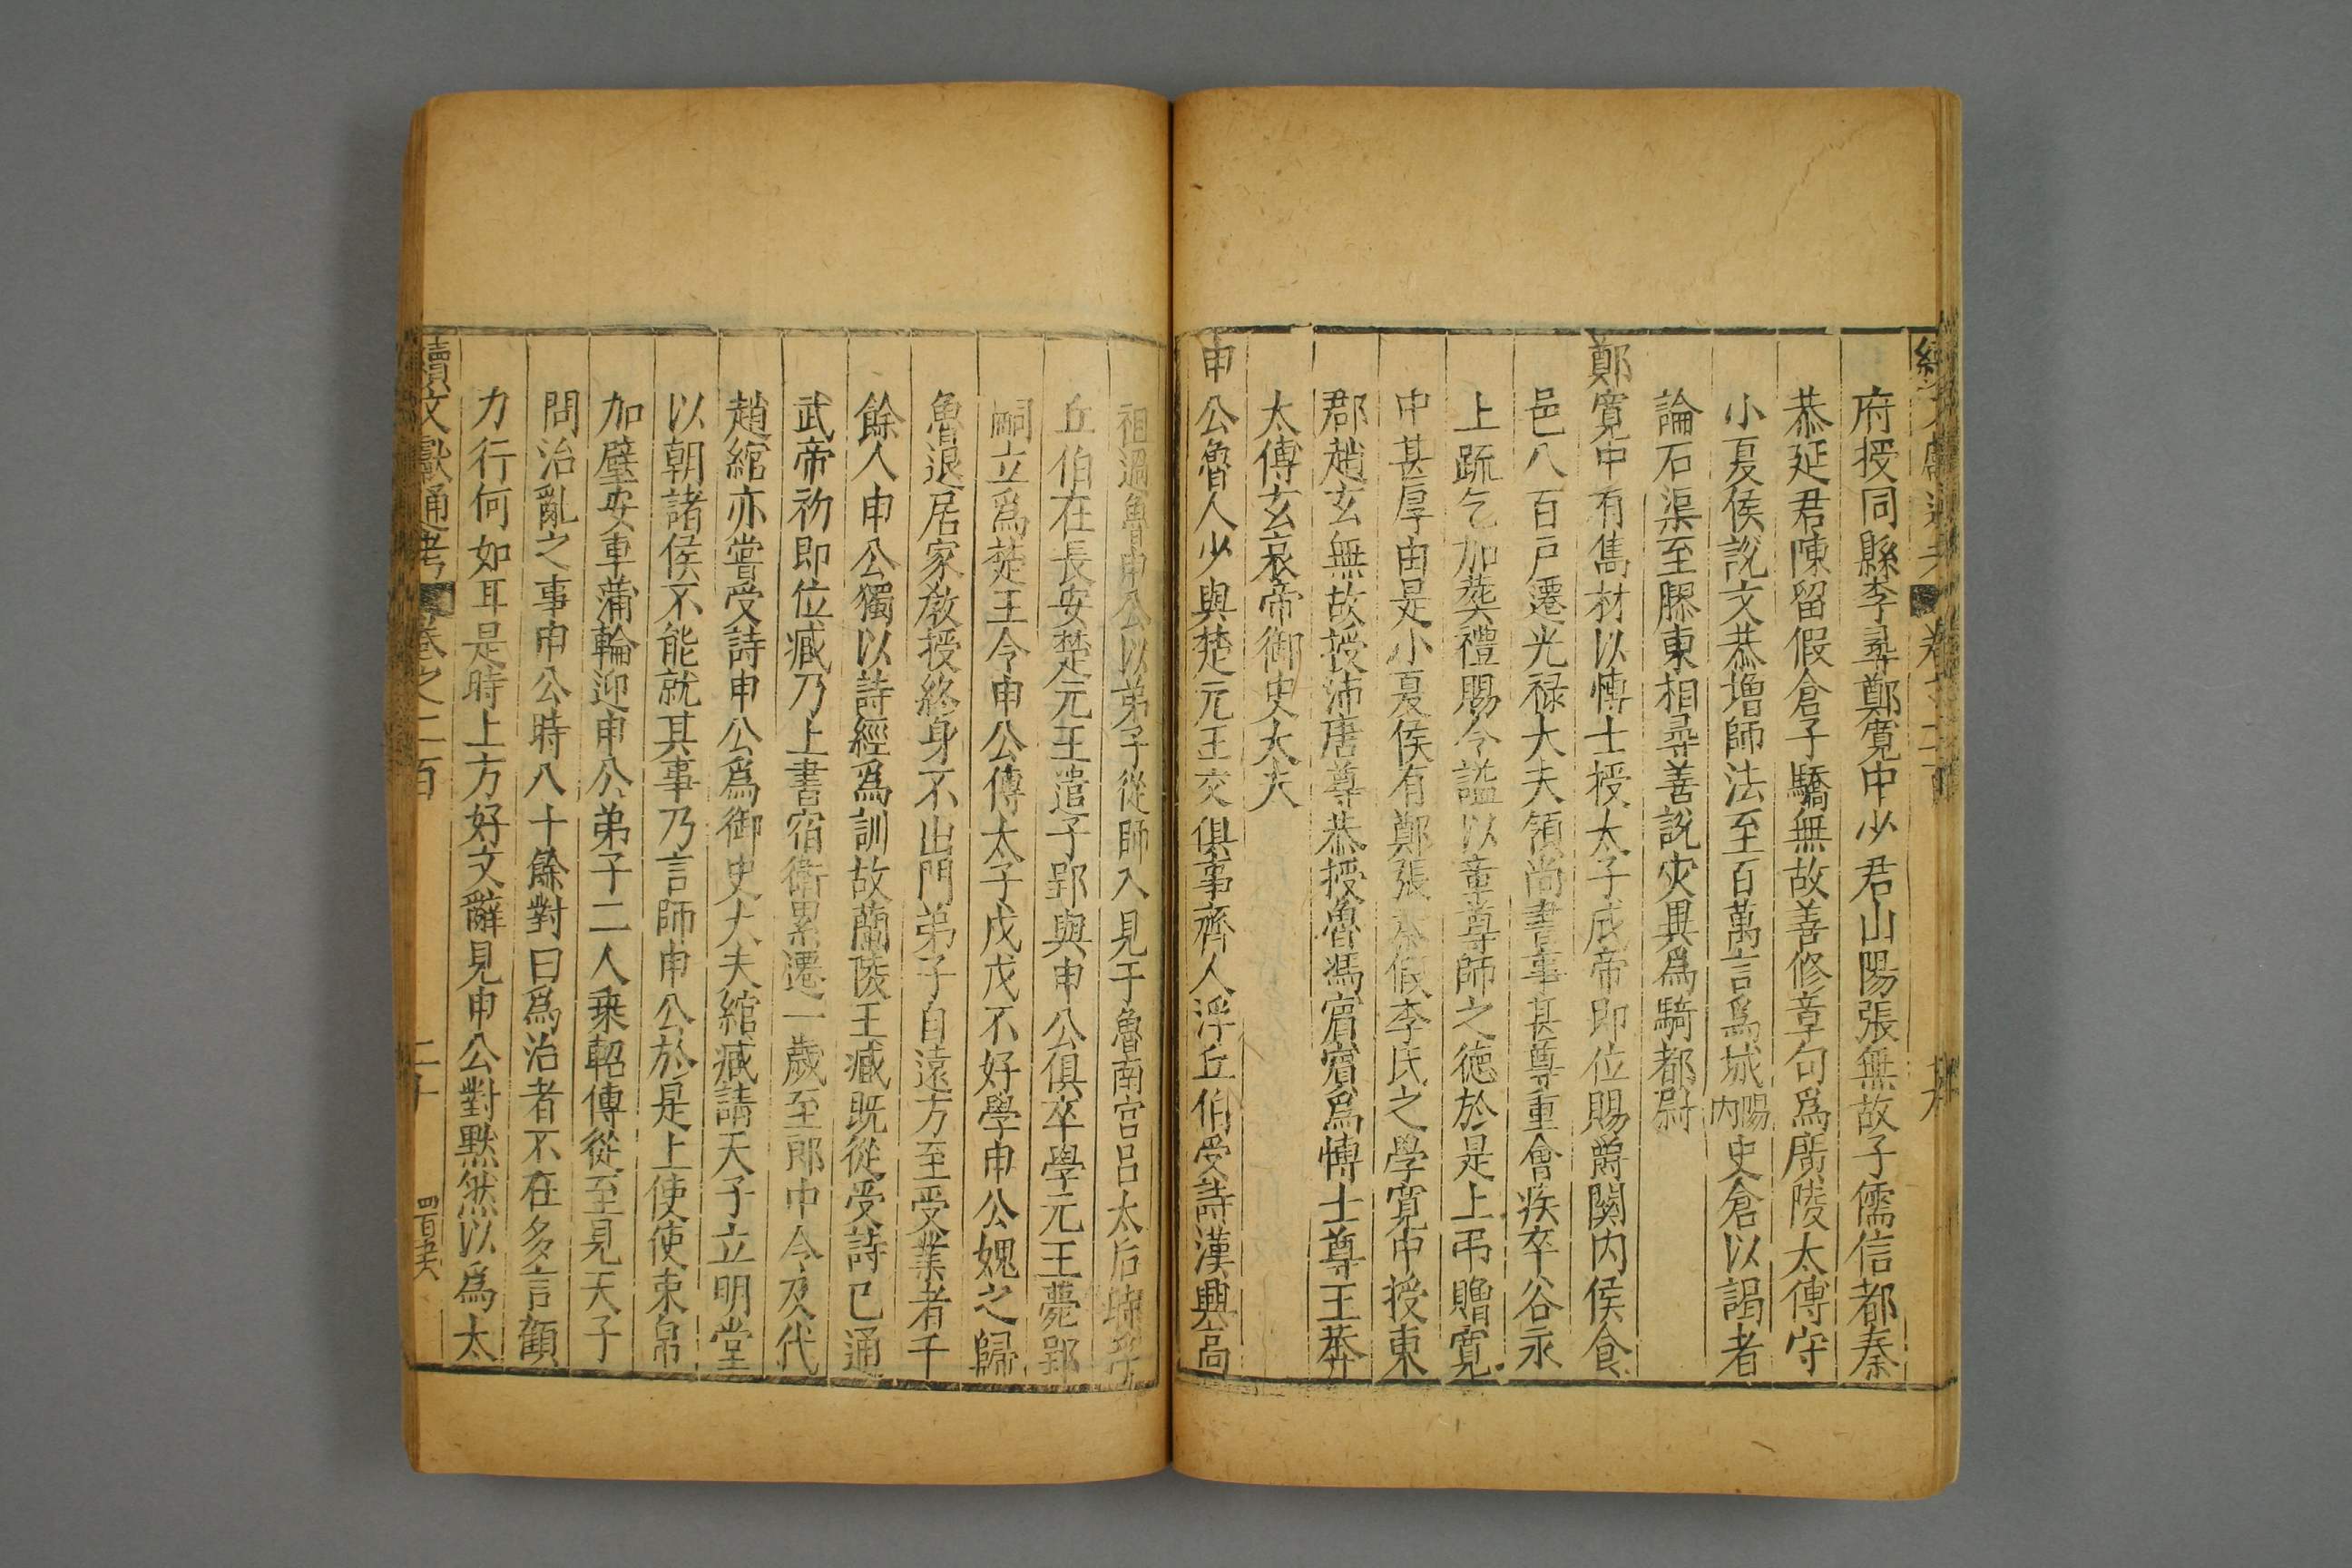 府授同縣李尋鄭寬中少君山陽張無故子儒信都秦
恭延君陳留假倉子驕無故善修章句爲廣陵太傅守
小夏侯說文恭增師法至百萬言爲城陽內史倉以謁者
論石渠至膠東相尋善說灾異爲騎都尉
鄭寬中有雋材以博士授太子成帝即位賜爵関內侯食
邑八百戶遷光禄大夫領尚書事甚尊重會疾卒谷永
上疏乞加葬禮賜令謚以章尊師之德於是上弔贈寬
中甚厚由是小夏侯有鄭張秦假李氏之學寬中授東
郡趙玄無故授沛唐尊恭授魯馮賔賔爲博士尊王莽
太傅玄哀帝御史大夫
申公魯人少與楚元王交俱事齊人浮丘伯受詩漢興高
祖過魯申公以弟子從師入見于魯南宮呂太后時浮
丘伯在長安楚元王遣子郢與申公俱卒學元王薨郢
嗣立爲楚王令申公傅太子戊戊不好學申公媿之歸
魯退居家教授終身不出門弟子自遠方至受業者千
餘人申公獨以詩經爲訓故蘭陵王臧既從受詩已通
武帝初即位臧乃上書宿衛累遷一歲至郎中令及代
趙綰亦嘗受詩申公爲御史大夫綰臧請天子立明堂
以朝諸侯不能就其事乃言師申公於是上使使束帛
加璧安車蒲輪迎申公弟子二人乗軺傳從至見天子
問治亂之事申公時八十餘對曰爲治者不在多言顧
力行何如耳是時上方好文辭見申公對默然以爲太
續文獻通考 卷之二百 二十 四百卄六